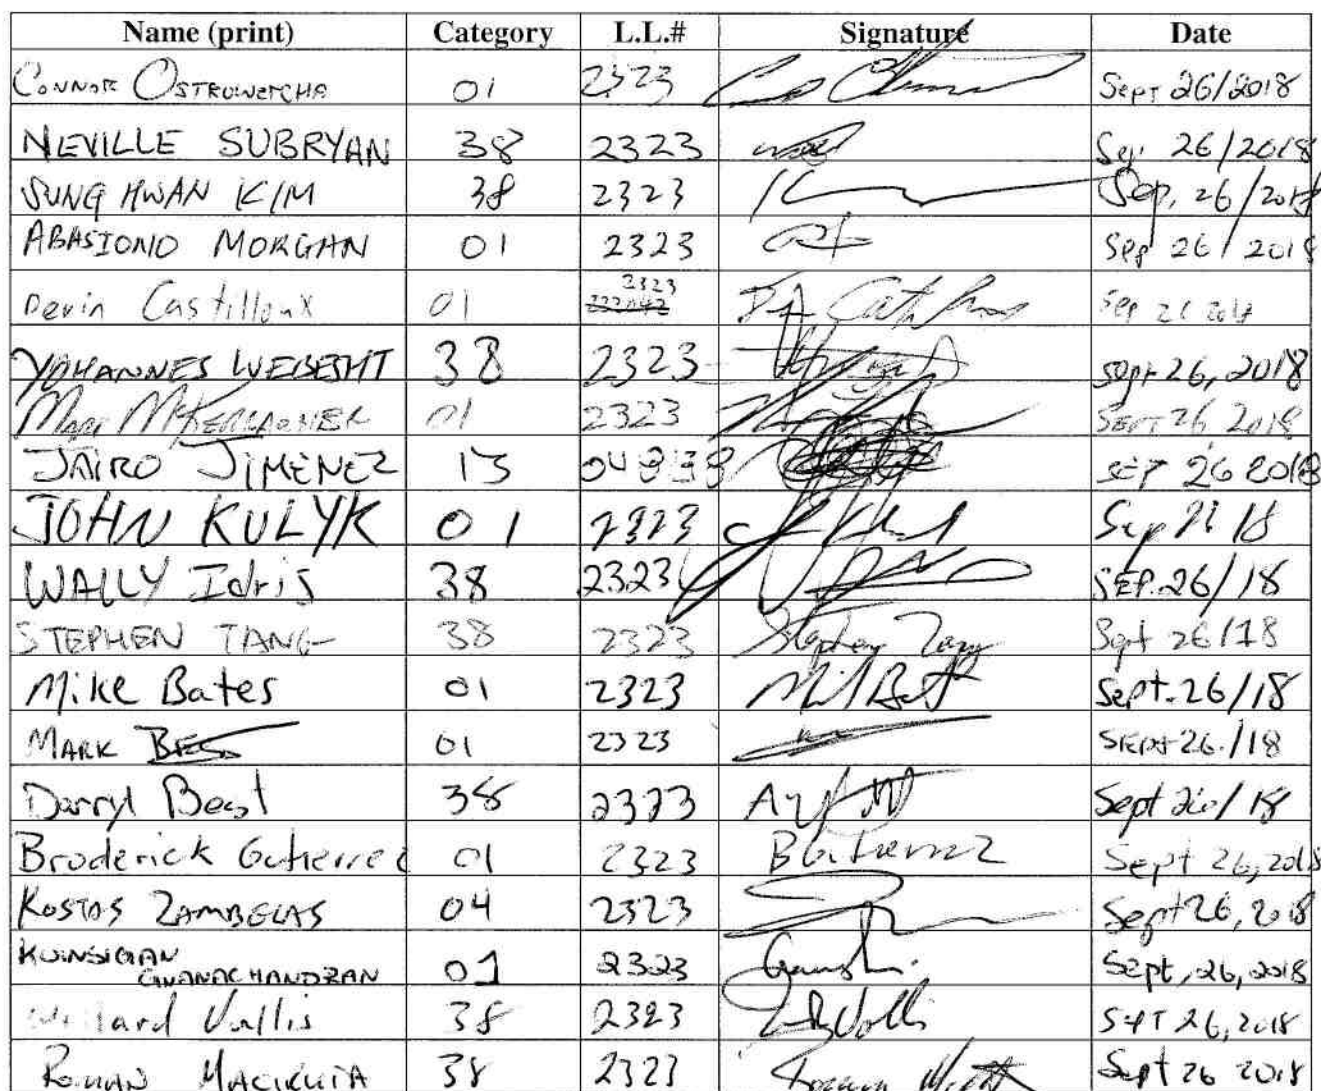 Name (print) Category L.L.# Signature Date
CONNOR 01 2323 Sept 26/2018
NEVILLE SUBRYAN 38 2323 Sep. 26/2018
SUNG HWAN KIM 38 2323 Sep. 26/2018
ABASIONO MORGAN 01 2323 Sep 26/2018
Devin Castilloux 01 2323 Sep 26 2018
YOHANNES 38 2323 Sept 26, 2018
MARK 01 2323 SEPT 26 2018
JAIRO JIMENEZ 13 SEP 26 2018
JOHN KULYK 01 2323 Sep 26 18
WALLY Idris 38 2323 SEP. 26/18
STEPHEN TANG 38 2323 Stephen Tang Sept 26/18
Mike Bates 01 2323 Mik Bat Sept. 26/18
MARK 01 2323 SEPT 26./18
Darryl Best 38 2323 Sept 26/18
Broderick Gutierrez 01 2323 B Gutierrez Sept 26, 2018
KOSTAS ZAMBELAS 04 2323 Sept 26, 2018
GNANACHANDRAN 01 2323 Sept, 26, 2018
Willard Vallis 38 2323 Vallis SEPT 26, 2018
ROMAN 38 2323 Sept 26 2018